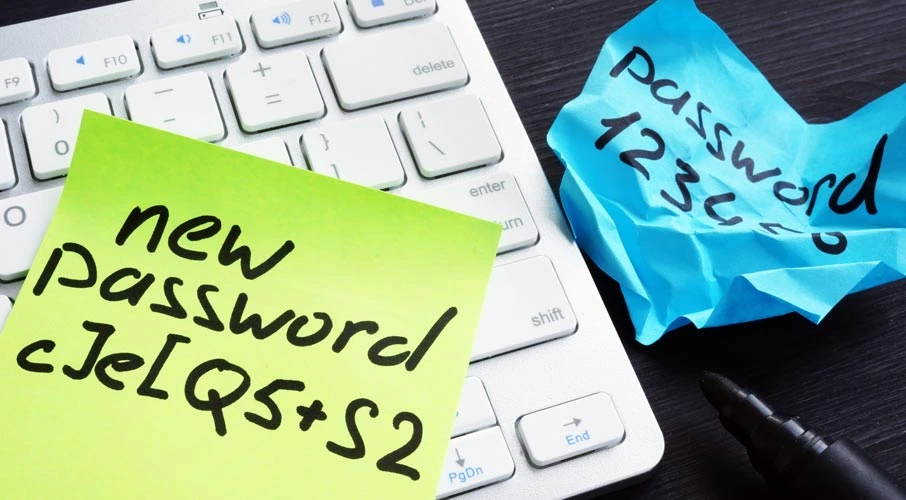 F9
F10
F11
F12
Del
delete
enter
shift
End
PgDn
new
password
cJe[Q5+S2
password